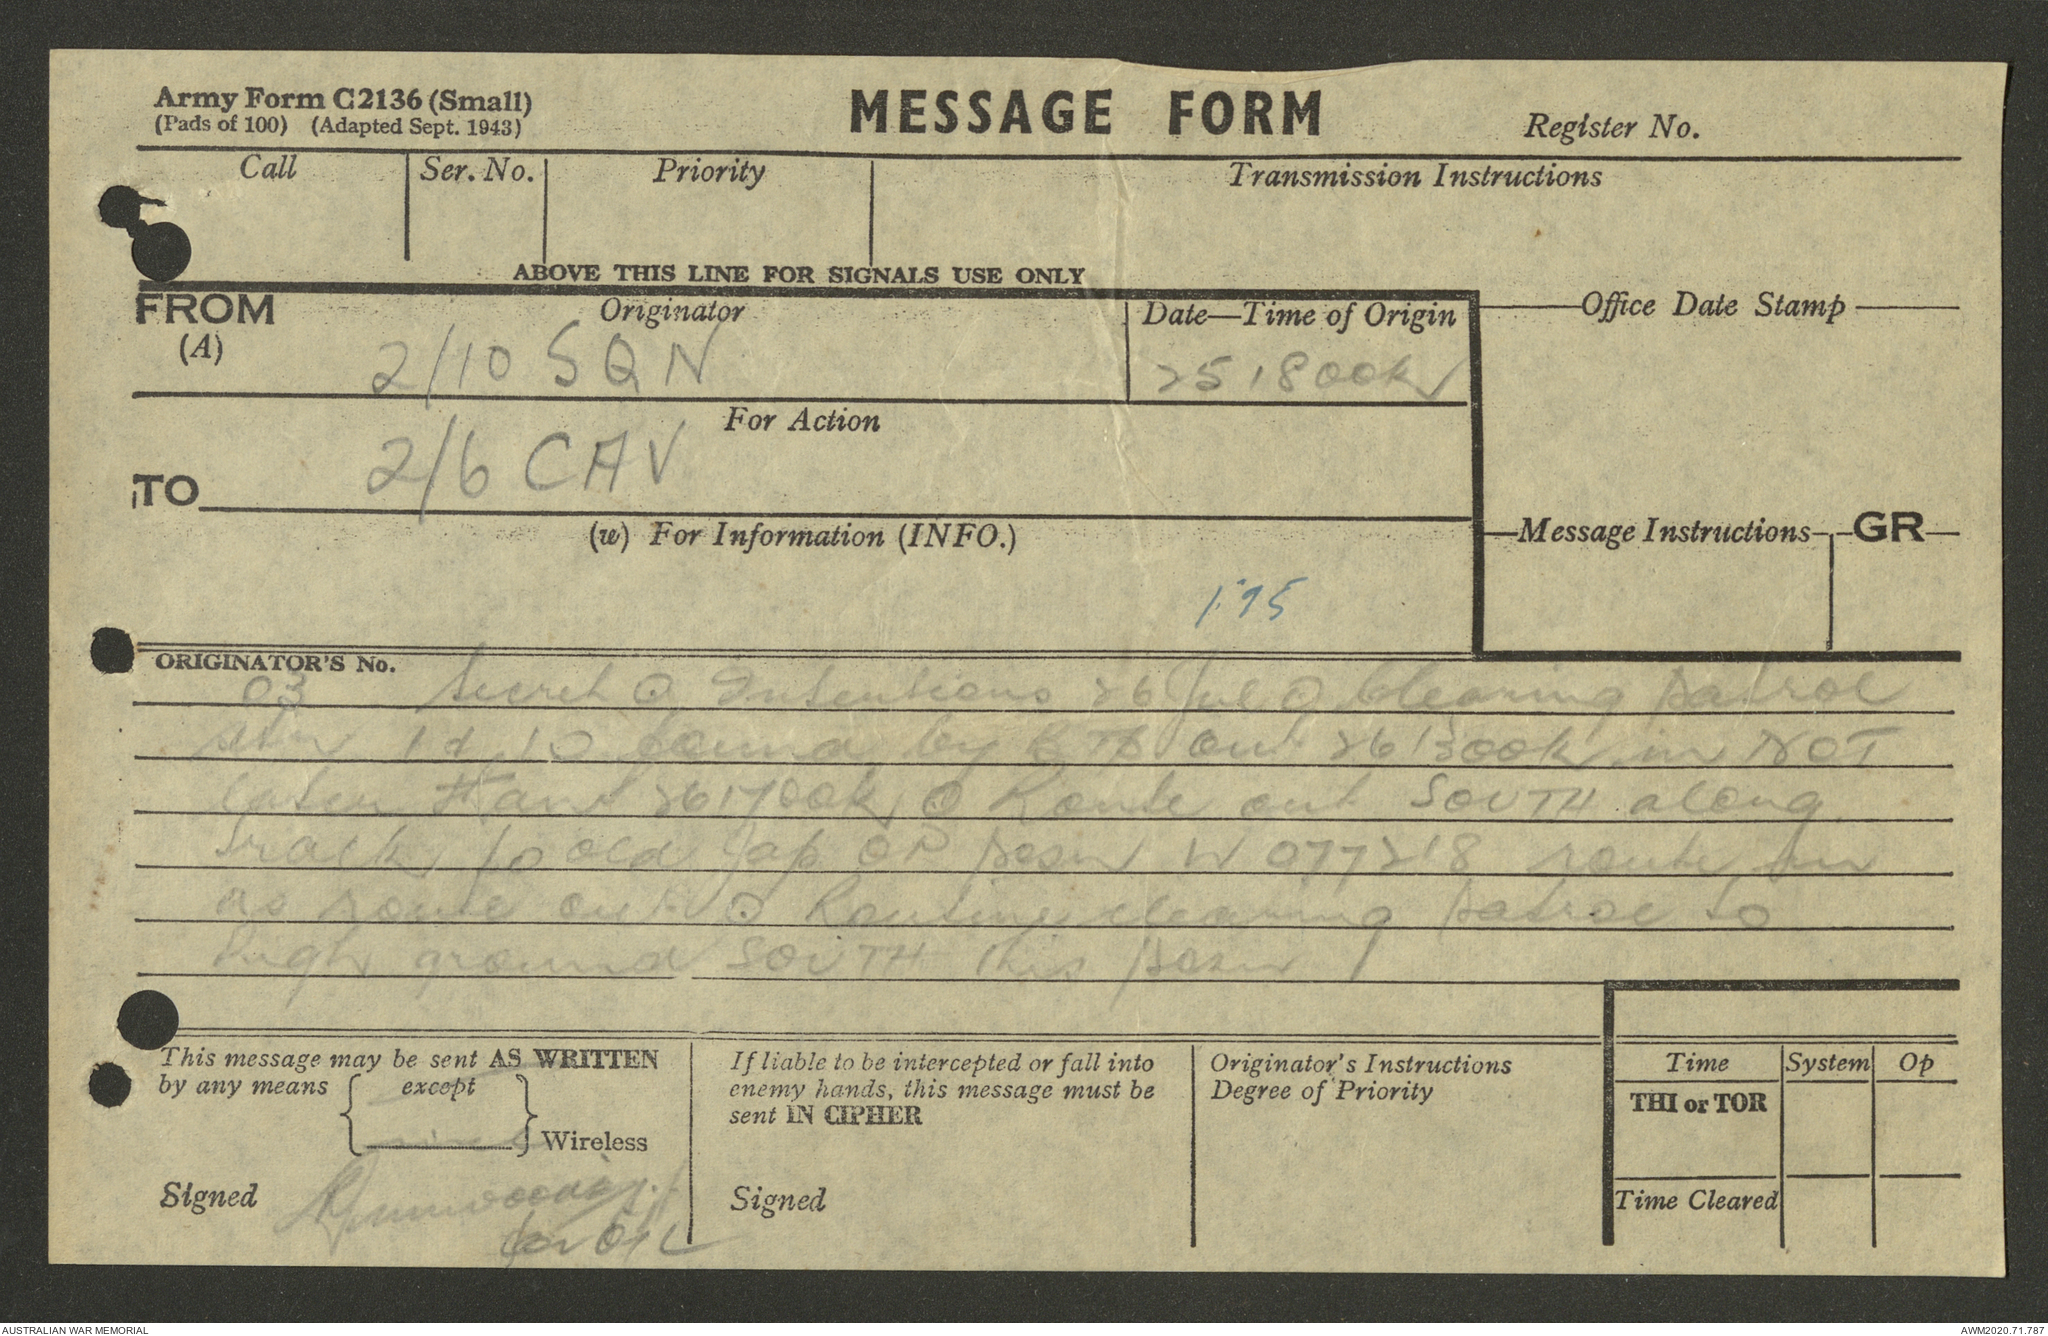 Army Form C2136 (Small)
(Pads of 100) (Adapted Sept. 1943)
MESSAGE FORM
Register No.
Call
Ser. No.
Priority
Transmission Instructions
ABOVE THIS LINE FOR SIGNALS USE ONLY
FROM
(A)
Originator
2/10 SQN
Date—Time of Origin
251800K
Office Date Stamp
For Action
TO
2/6 CAV
(w) For Information (INFO.)
Message Instructions
GR
175
ORIGINATOR'S No.
03 Secret ⊙ Intentions 26 Jul ⊙ Clearing patrol
1 d 10 found by out 261300K in NOT
later than 261700K ⊙ Route out SOUTH along
track to old Jap OP posn W 077218 route in
as route out ⊙ Routine clearing patrol to
high ground SOUTH this posn
This message may be sent AS WRITTEN
by any means { except
} Wireless
Signed
for O i/c
If liable to be intercepted or fall into
enemy hands, this message must be
sent IN CIPHER
Signed
Originator's Instructions
Degree of Priority
Time
System
Op
THI or TOR
Time Cleared
AUSTRALIAN WAR MEMORIAL
AWM2020.71.787